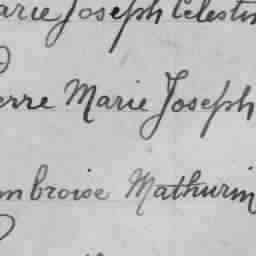 arie Joseph Celestin
erre Marie Joseph
mbroise Mathurin